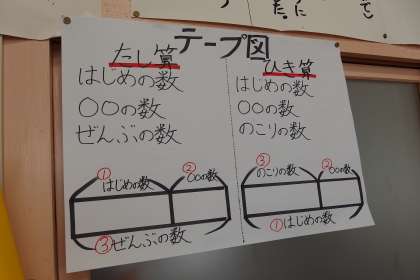 テープ図
たし算
はじめの数
○○の数
ぜんぶの数
①はじめの数
②○○の数
③ぜんぶの数
ひき算
はじめの数
○○の数
のこりの数
③のこりの数
②○○の数
①はじめの数